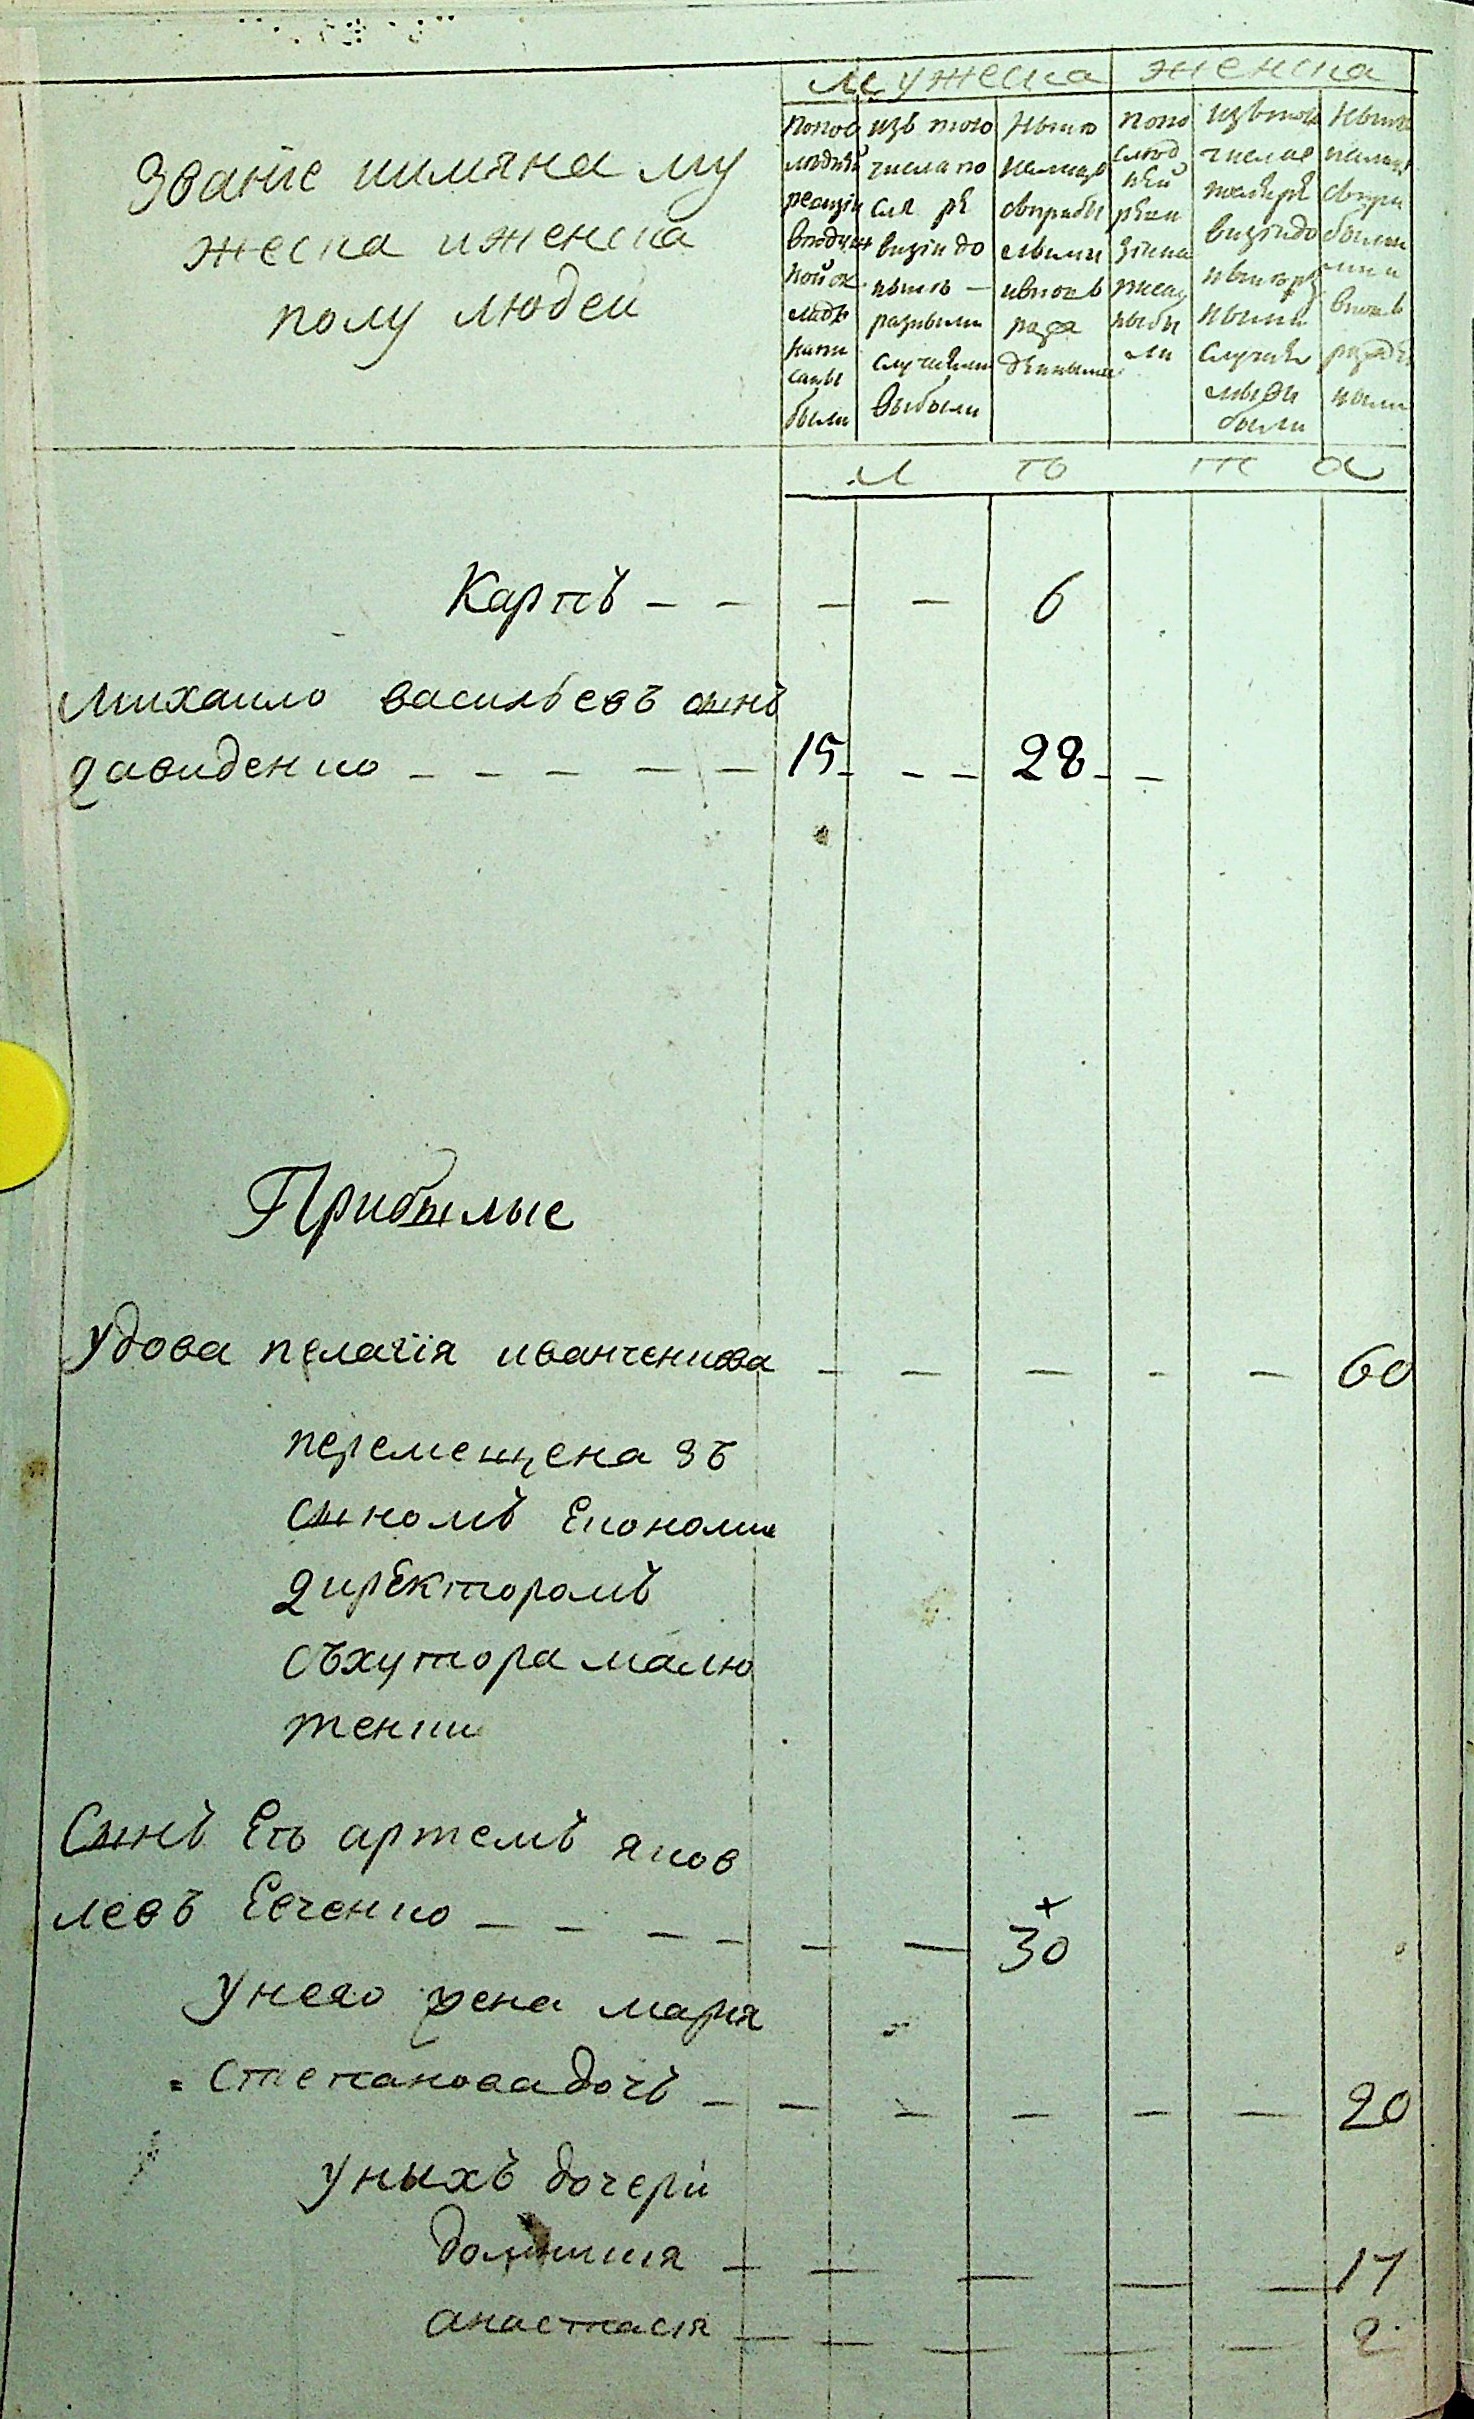 мужеска женска
Званіе иимяна му
жеска иженска
полу людей
попос
ледней
ревизіи
вподуш
ной ок
ладъ
напи
саны
были
изъ того
числа по
сля ре
визіи до
ныне —
разными
случаями
выбыли
Ныне
налицо
сприбы
лыми
ивновь
рож
денными
попо
след
ней
реви
зіи на
писа
ны бы
ли
изътого
числа
визіидо
ными
случая
были
Ныне
лѣта
Карпъ — — — — 6
Михаило васильевъ сынъ
давиденко — — — — — 15 — — 28 — —
Прибылые
Удова пелагія иванченкова — — — — — 60
перемещена зъ
сыномъ Економіи
директоромъ
съхутора малю
женки
Сынъ Еѣ артемъ яков
левъ Евченко — — — — — — 30
Унего жена марія
степановадочь — — — — — — 20
Уныхъ дочери
домникия — — — — — 17
анастасія — — — — — 2